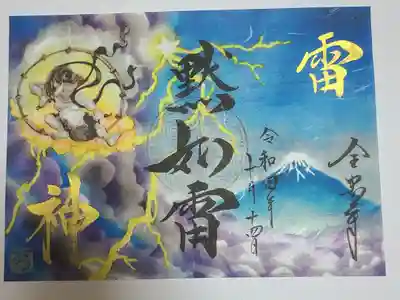 雷
全忠寺
令和四年
十月十四日
黙如雷
神